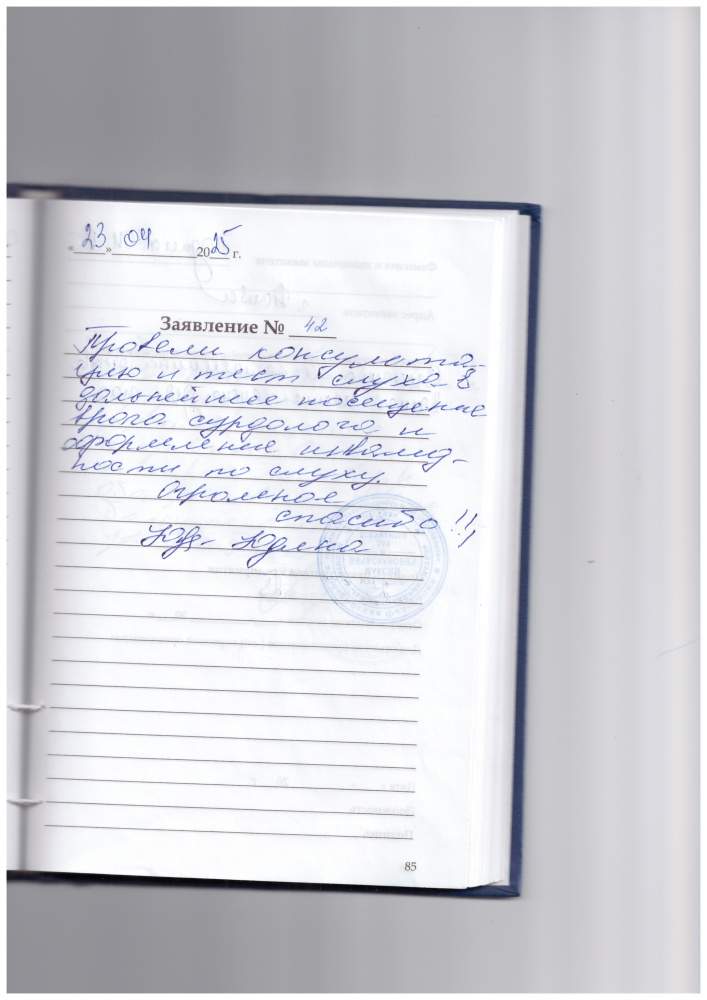 «23» 04 2025 г.
Заявление № 42
Провели консульта-
цию и тест слуха в
дальнейшее посещение
врача сурдолога и
оформление инвалид-
ности по слуху.
Огромное
спасибо!!!
85